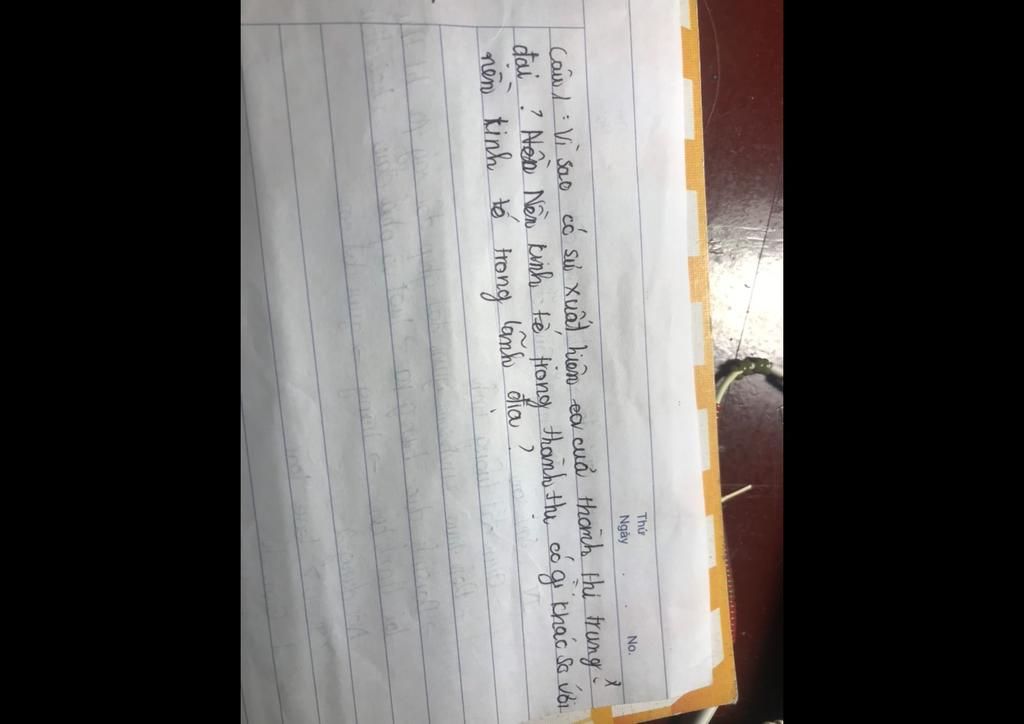 Thứ
Ngày No.
Câu 1 : Vì sao có sự xuất hiện của thành thị trung
đại ? Nền Nền kinh tế trong thành thị có gì khác so với
nền kinh tế trong lãnh địa ?